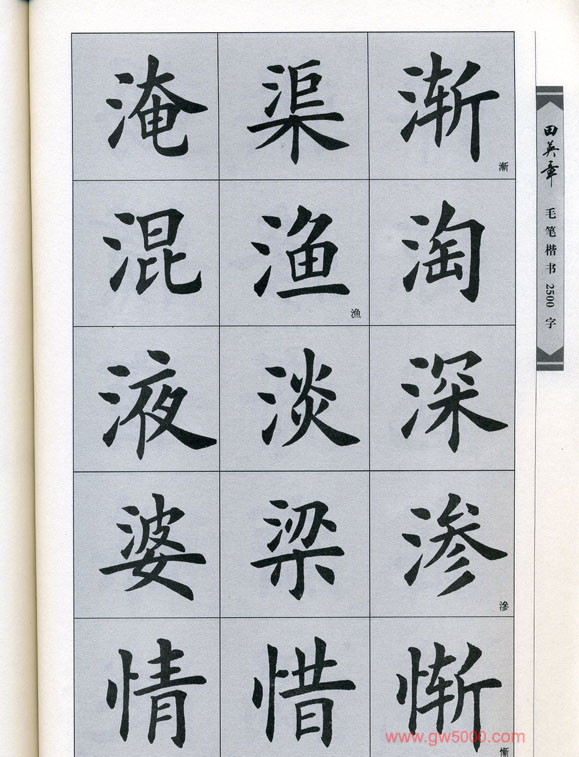 淹 渠 渐 漸
混 渔 漁 淘
液 淡 深
婆 梁 渗 滲
情 惜 惭 慚
田英章
毛笔楷书2500字
www.gw5000.com